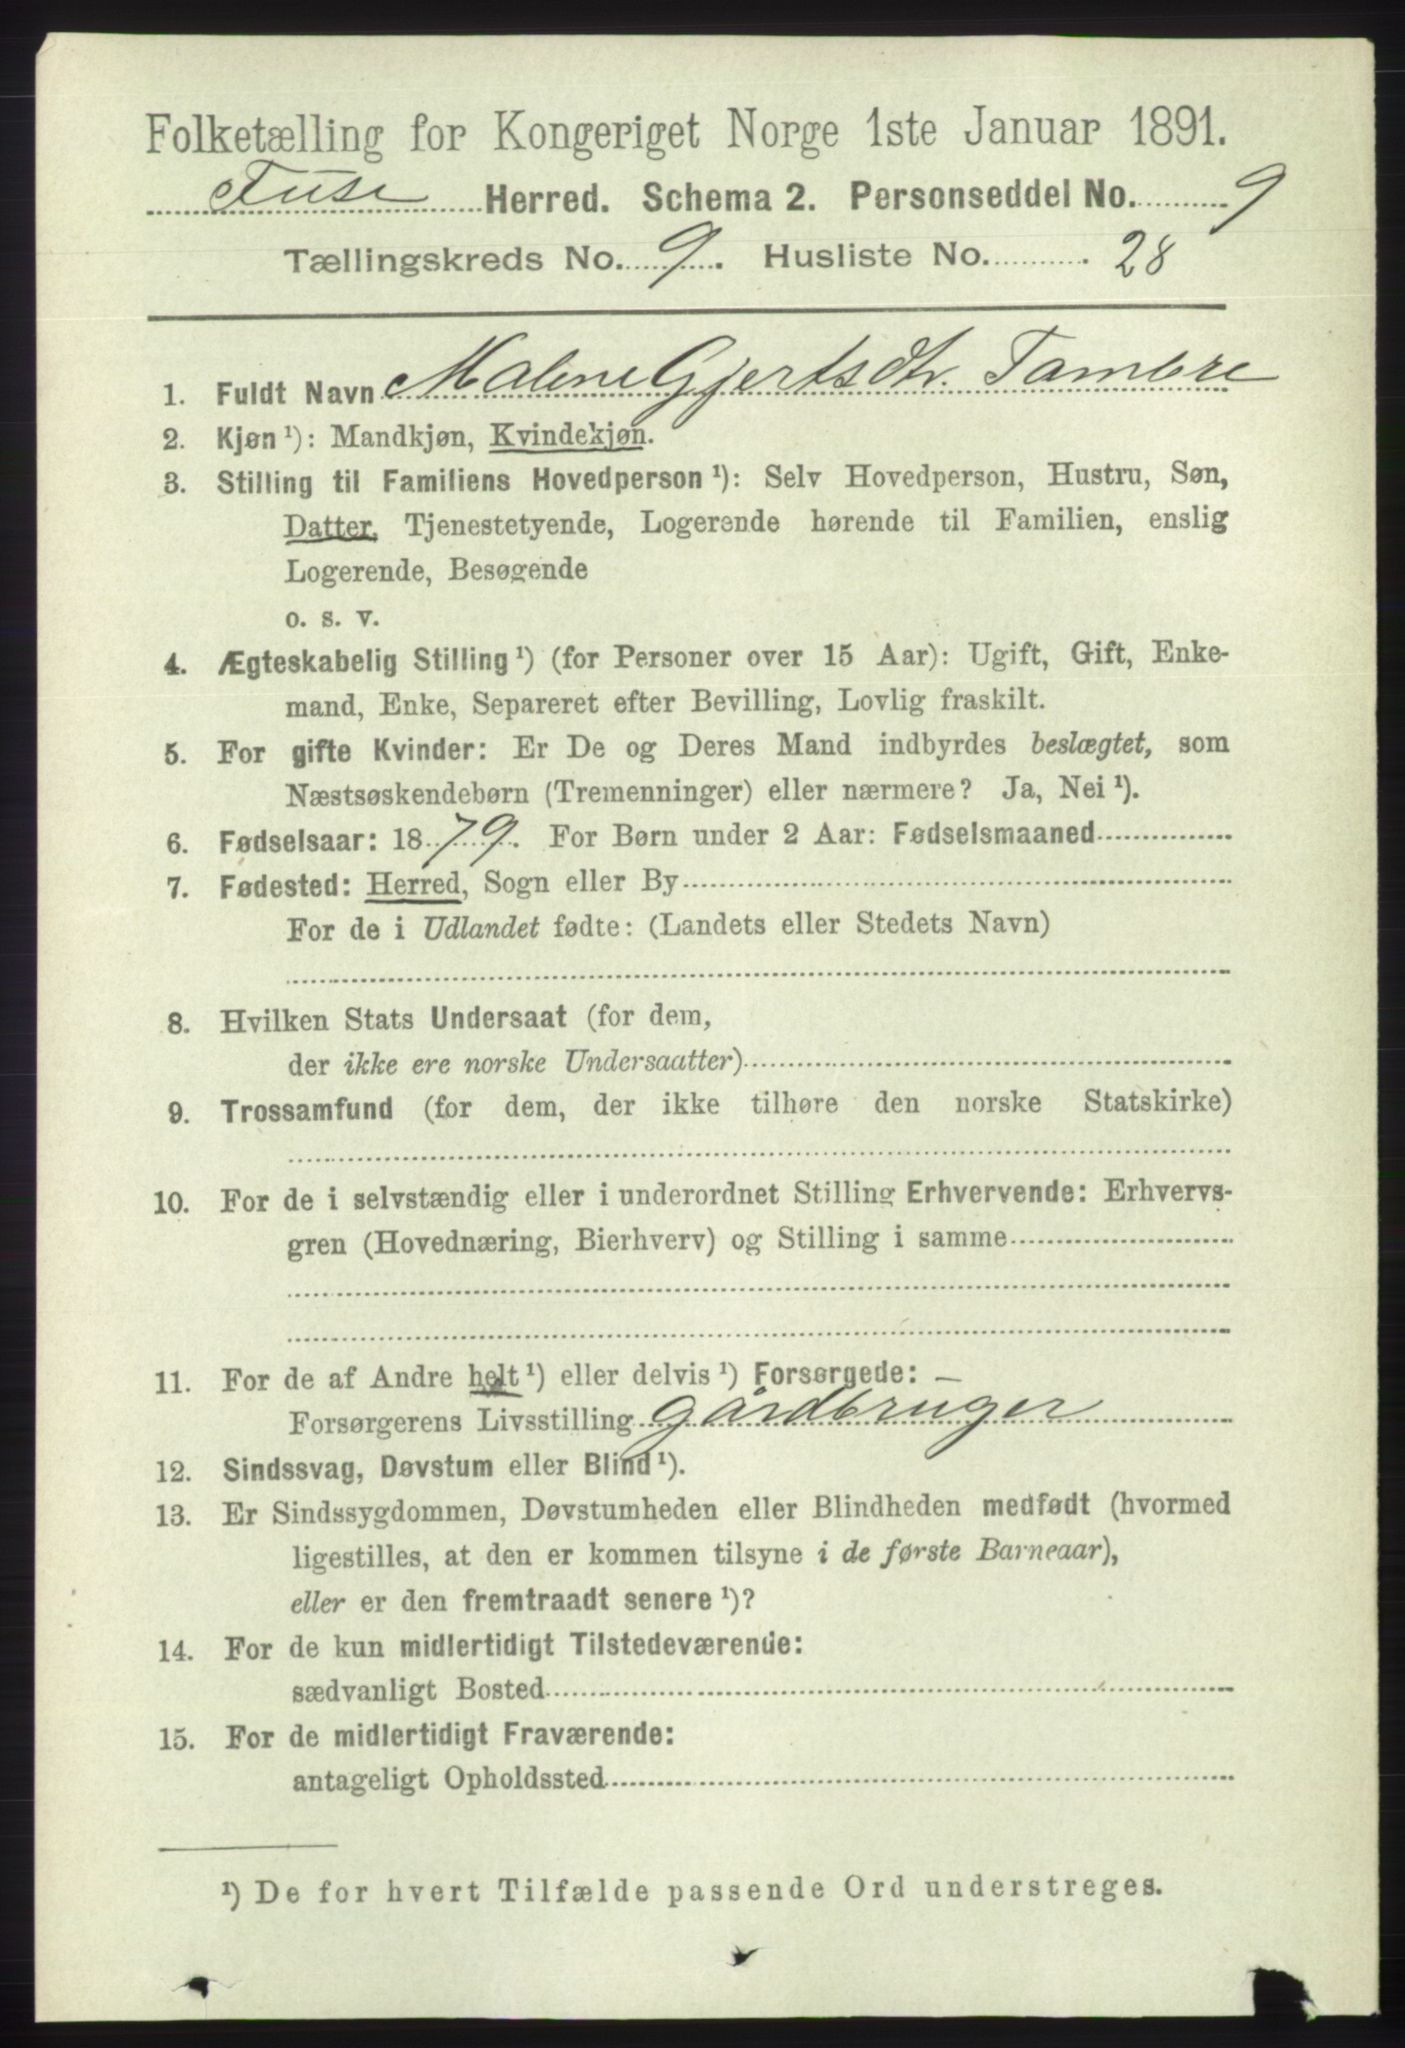 Folketælling for Kongeriget Norge 1ste Januar 1891.
Fuse Herred. Schema 2. Personseddel No. 9
Tællingskreds No. 9. Husliste No. 28
1. Fuldt Navn Malene Gjertsdtr. Tambre
2. Kjøn ¹): Mandkjøn, Kvindekjøn.
3. Stilling til Familiens Hovedperson ¹): Selv Hovedperson, Hustru, Søn,
Datter, Tjenestetyende, Logerende hørende til Familien, enslig
Logerende, Besøgende
o. s. v.
4. Ægteskabelig Stilling ¹) (for Personer over 15 Aar): Ugift, Gift, Enke-
mand, Enke, Separeret efter Bevilling, Lovlig fraskilt.
5. For gifte Kvinder: Er De og Deres Mand indbyrdes beslægtet, som
Næstsøskendebørn (Tremenninger) eller nærmere? Ja, Nei ¹).
6. Fødselsaar: 1879. For Børn under 2 Aar: Fødselsmaaned
7. Fødested: Herred, Sogn eller By
For de i Udlandet fødte: (Landets eller Stedets Navn)
8. Hvilken Stats Undersaat (for dem,
der ikke ere norske Undersaatter)
9. Trossamfund (for dem, der ikke tilhøre den norske Statskirke)
10. For de i selvstændig eller i underordnet Stilling Erhvervende: Erhvervs-
gren (Hovednæring, Bierhverv) og Stilling i samme
11. For de af Andre helt ¹) eller delvis ¹) Forsørgede: –
Forsørgerens Livsstilling gårdbruger
12. Sindssvag, Døvstum eller Blind ¹).
13. Er Sindssygdommen, Døvstumheden eller Blindheden medfødt (hvormed
ligestilles, at den er kommen tilsyne i de første Barneaar),
eller er den fremtraadt senere ¹)?
14. For de kun midlertidigt Tilstedeværende:
sædvanligt Bosted
15. For de midlertidigt Fraværende:
antageligt Opholdssted
¹) De for hvert Tilfælde passende Ord understreges.